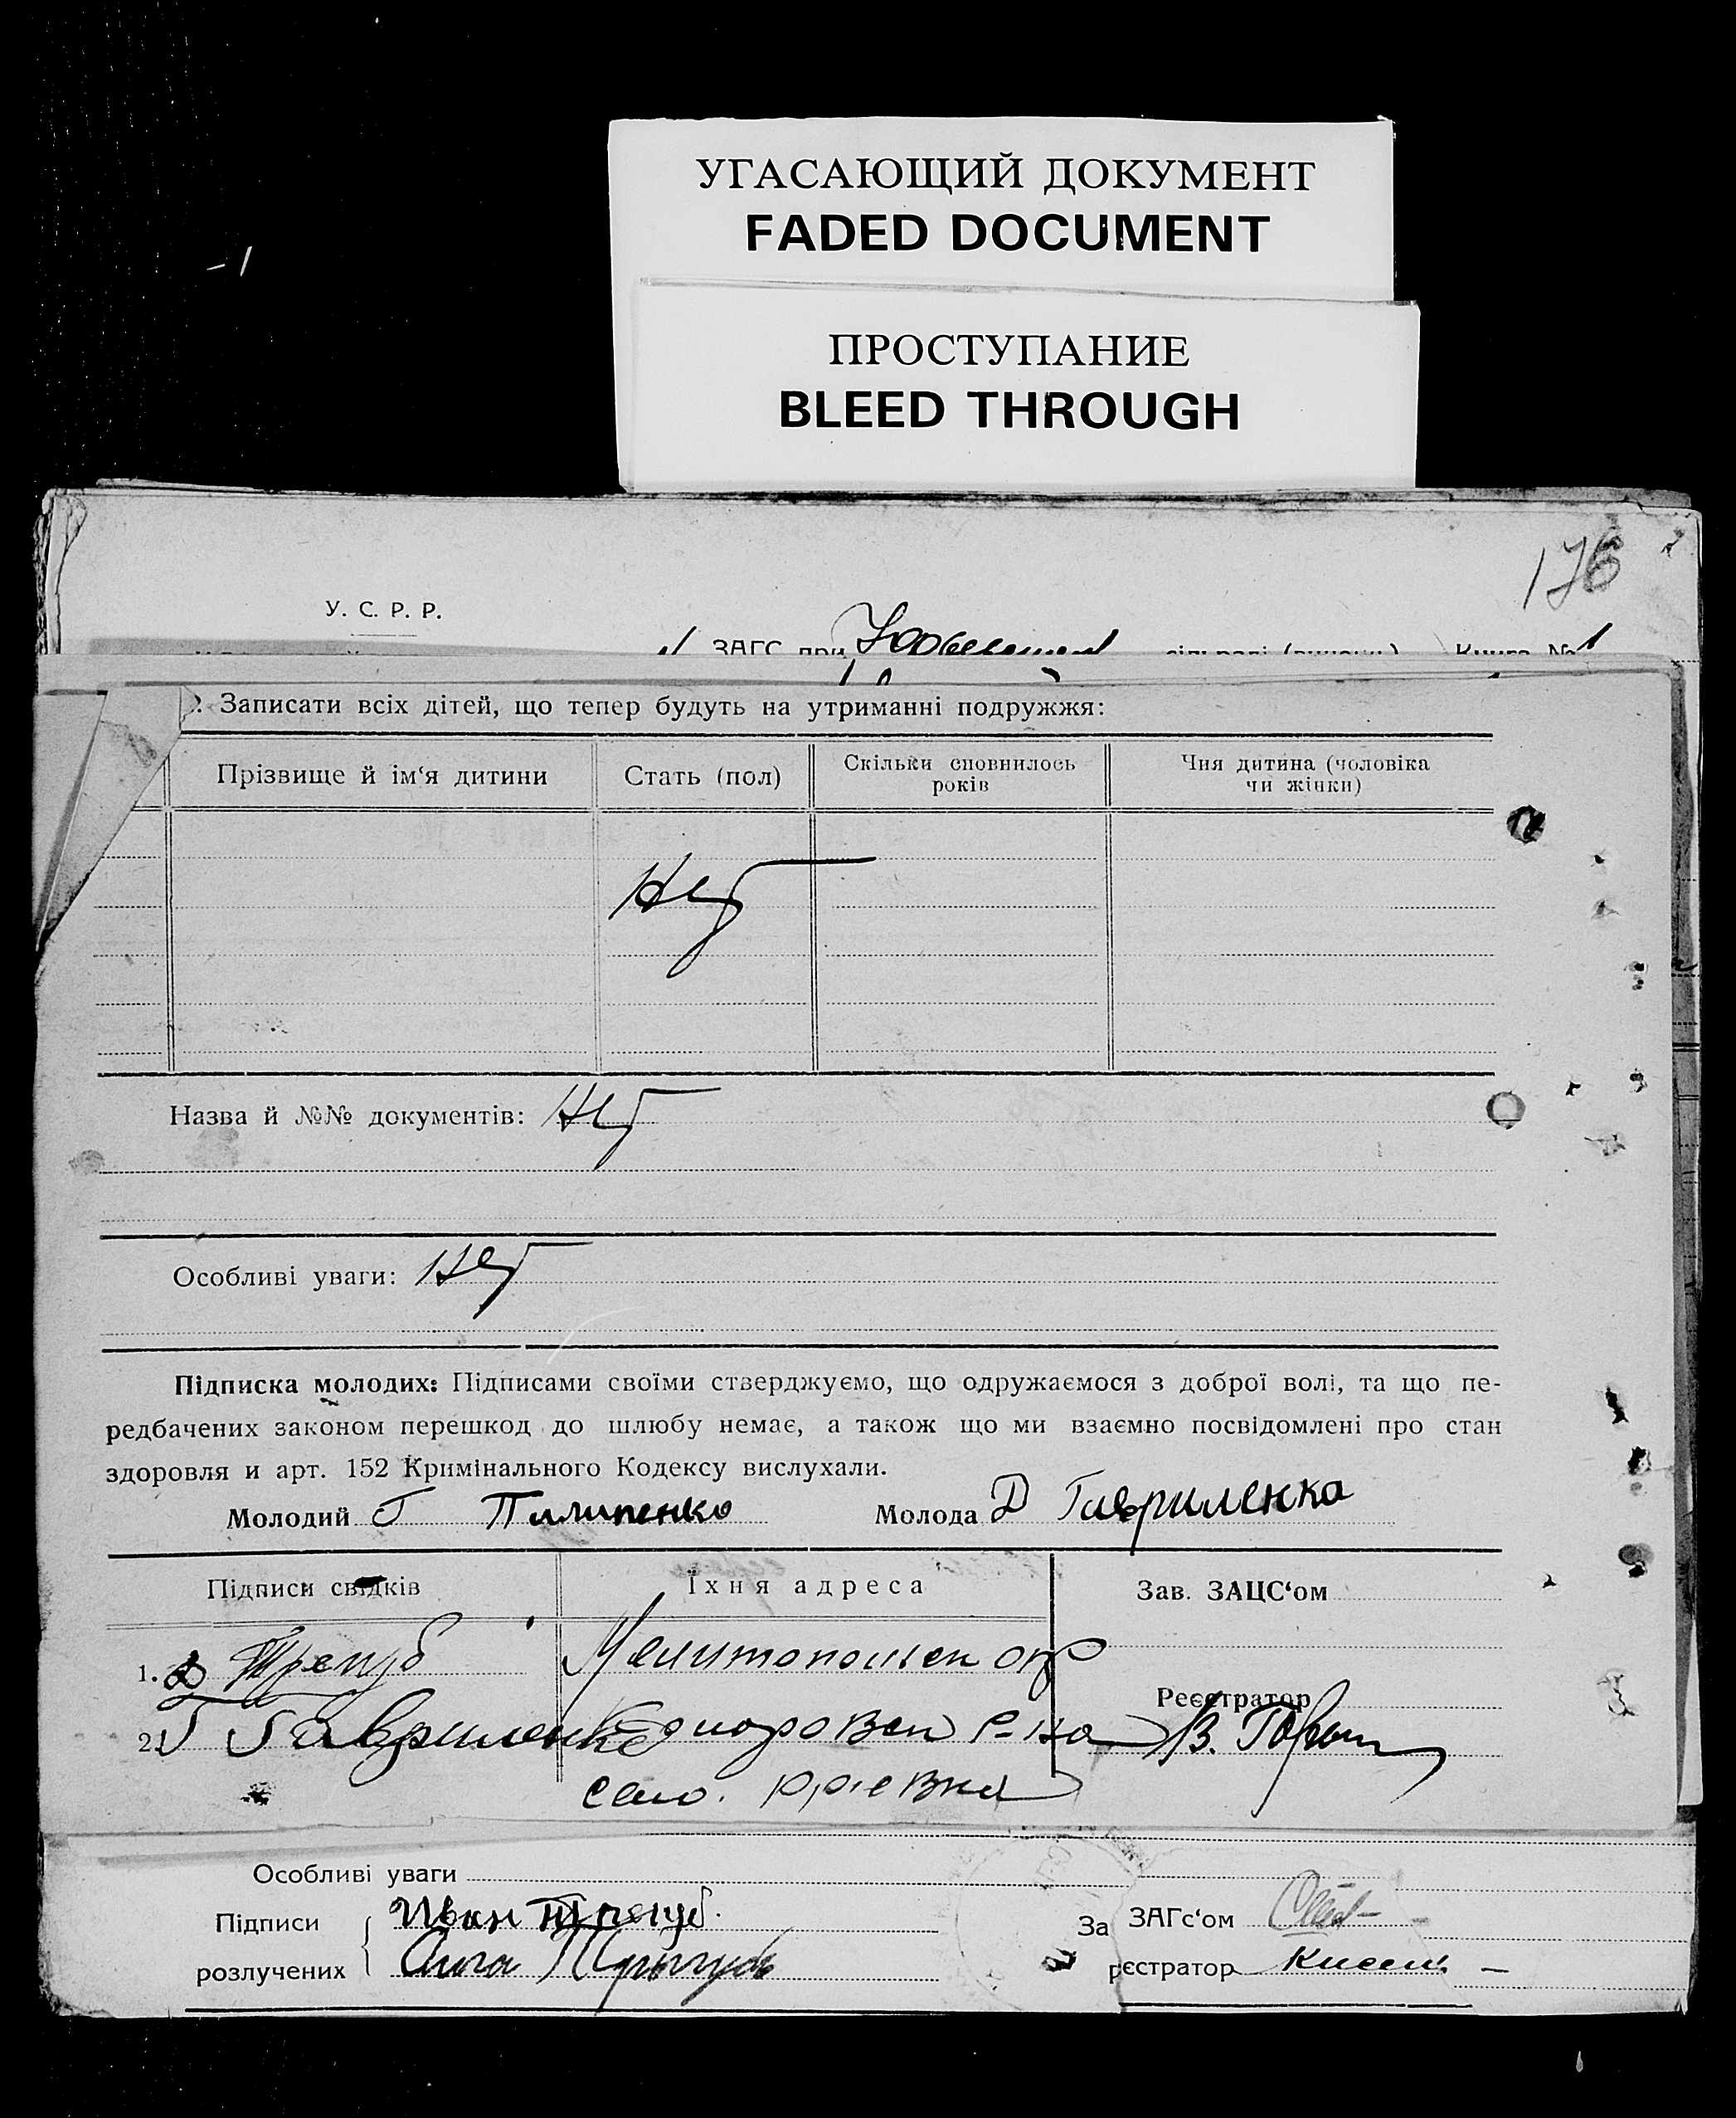 УГАСАЮЩИЙ ДОКУМЕНТ
FADED DOCUMENT
ПРОСТУПАНИЕ
BLEED THROUGH
176
У. С. Р. Р.
ЗАГС при сільраді Книга № 1
Записати всіх дітей, що тепер будуть на утриманні подружжя:
Прізвище й ім‘я дитини Стать (пол) Скільки сповнилось років Чия дитина (чоловіка чи жінки)
Нет
Назва й №№ документів: Нет
Особливі уваги: Нет
Підписка молодих: Підписами своїми стверджуємо, що одружаємося з доброї волі, та що пе-
редбачених законом перешкод до шлюбу немає, а також що ми взаємно посвідомлені про стан
здоровля и арт. 152 Кримінального Кодексу вислухали.
Молодий Г Пилипенко Молода Д Гавриленка
Підписи свідків Їхня адреса Зав. ЗАЦС‘ом
1. Д Трегуб Мелитопольск окр
Реєстратор
2. Г Гавриленко р-на В.
село.
Особливі уваги
Підписи Иван Трегуб. За ЗАГс‘ом
розлучених рєстратор